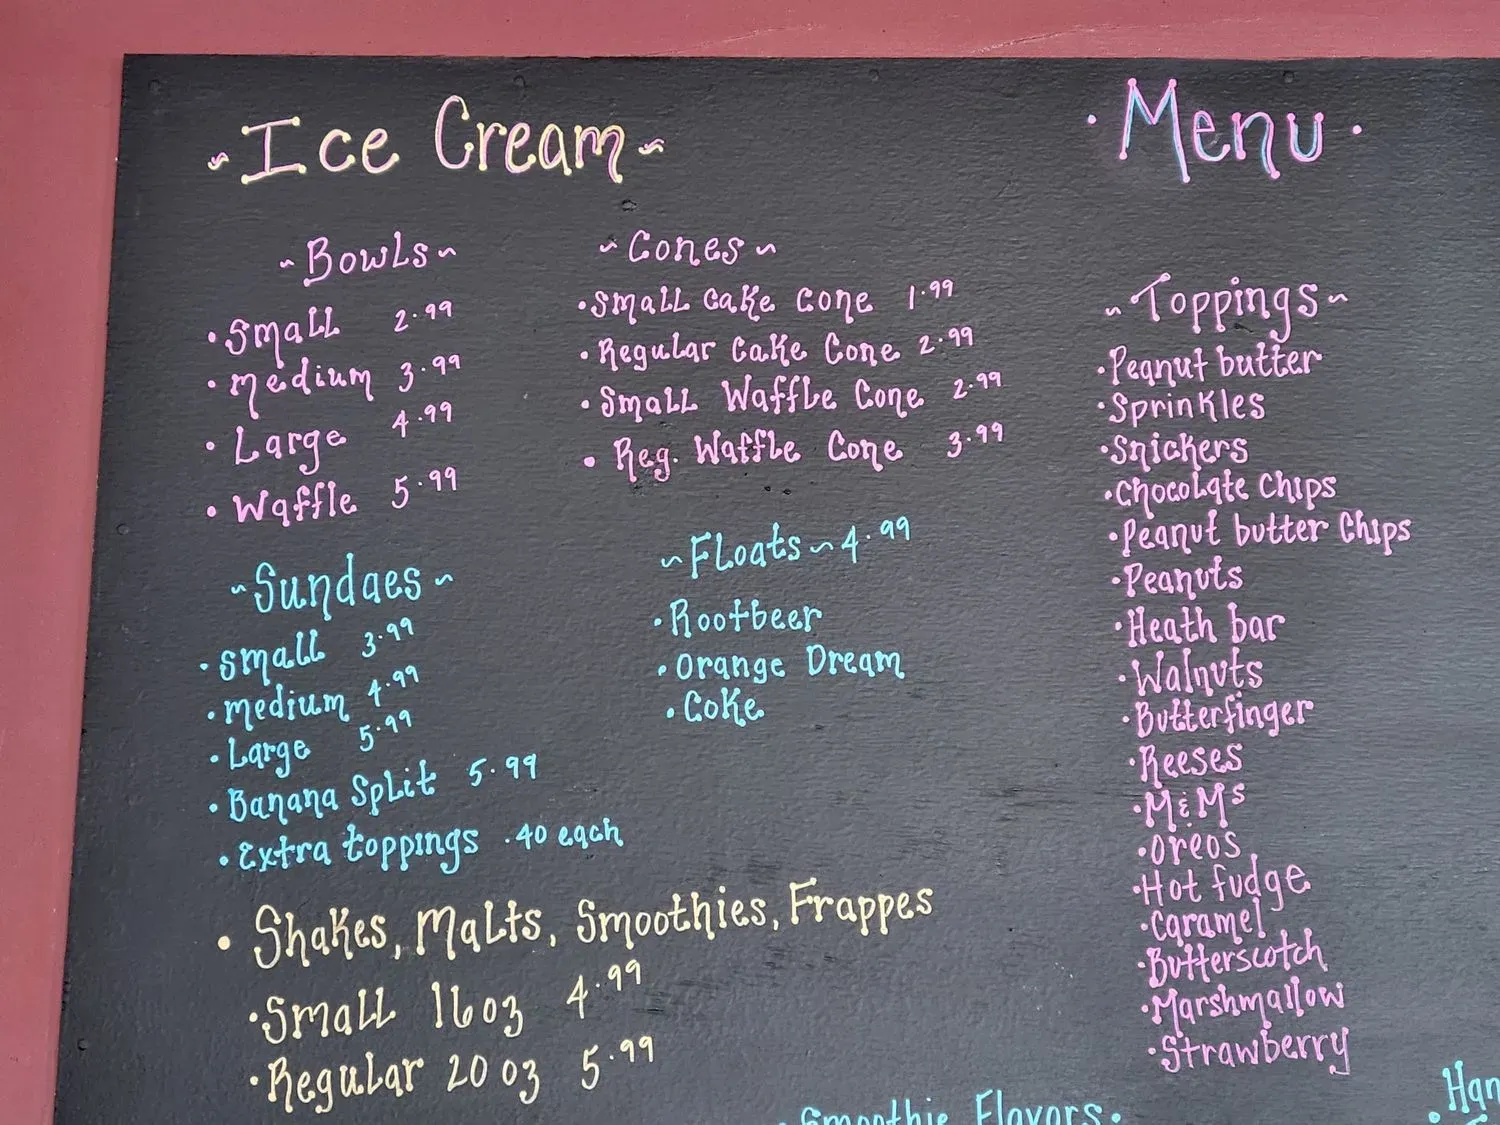 ~Ice Cream~
·Menu·
~Bowls~
·Small 2.99
·medium 3.99
·Large 4.99
·Waffle 5.99
~Cones~
·Small cake cone 1.99
·Regular Cake Cone 2.99
·Small Waffle Cone 2.99
·Reg. Waffle Cone 3.99
~Sundaes~
·small 3.99
·medium 4.99
·Large 5.99
·Banana Split 5.99
·Extra toppings .40 each
~Floats~4.99
·Rootbeer
·Orange Dream
·Coke
·Shakes, Malts, Smoothies, Frappes
·Small 16oz 4.99
·Regular 20oz 5.99
~Toppings~
·Peanut butter
·Sprinkles
·Snickers
·Chocolate Chips
·Peanut butter Chips
·Peanuts
·Heath bar
·Walnuts
·Butterfinger
·Reeses
·M&Ms
·Oreos
·Hot fudge
·Caramel
·Butterscotch
·Marshmallow
·Strawberry
·Smoothie Flavors·